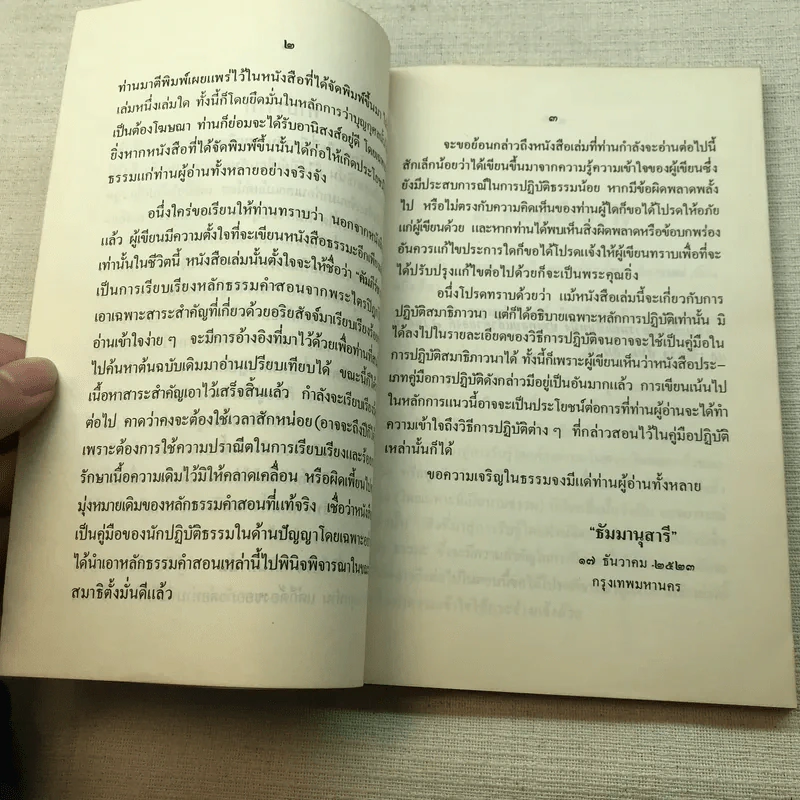 ๒
ท่านมาตีพิมพ์เผยแพร่ไว้ในหนังสือที่ได้จัดพิมพ์ขึ้นมา
เล่มหนึ่งเล่มใด ทั้งนี้ก็โดยยึดมั่นในหลักการว่าบุญกุศล
เป็นต้องโฆษณา ท่านก็ย่อมจะได้รับอานิสงส์อยู่ดี
ยิ่งหากหนังสือที่ได้จัดพิมพ์ขึ้นนั้นได้ก่อให้เกิดประโยชน์
ธรรมแก่ท่านผู้อ่านทั้งหลายอย่างจริงจัง
อนึ่งใคร่ขอเรียนให้ท่านทราบว่า นอกจากหนังสือ
แล้ว ผู้เขียนมีความตั้งใจที่จะเขียนหนังสือธรรมะอีกเพียง
เท่านั้นในชีวิตนี้ หนังสือเล่มนั้นตั้งใจจะให้ชื่อว่า
เป็นการเรียบเรียงหลักธรรมคำสอนจากพระไตรปิฎก
เอาเฉพาะสาระสำคัญที่เกี่ยวด้วยอริยสัจจ์มาเรียบเรียง
อ่านเข้าใจง่าย ๆ จะมีการอ้างอิงที่มาไว้ด้วยเพื่อท่านที่
ไปค้นหาต้นฉบับเดิมมาอ่านเปรียบเทียบได้ ขณะนี้ก็ได้
เนื้อหาสาระสำคัญเอาไว้เสร็จสิ้นแล้ว กำลังจะเรียบเรียง
ต่อไป คาดว่าคงจะต้องใช้เวลาสักหน่อย (อาจจะถึงปี
เพราะต้องการใช้ความปราณีตในการเรียบเรียงและ
รักษาเนื้อความเดิมไว้มิให้คลาดเคลื่อน หรือผิดเพี้ยนไป
มุ่งหมายเดิมของหลักธรรมคำสอนที่แท้จริง เชื่อว่าหนังสือ
เป็นคู่มือของนักปฏิบัติธรรมในด้านปัญญาโดยเฉพาะ
ได้นำเอาหลักธรรมคำสอนเหล่านี้ไปพินิจพิจารณาใน
สมาธิตั้งมั่นดีแล้ว
๓
จะขอย้อนกล่าวถึงหนังสือเล่มที่ท่านกำลังจะอ่านต่อไปนี้
สักเล็กน้อยว่าได้เขียนขึ้นมาจากความรู้ความเข้าใจของผู้เขียนซึ่ง
ยังมีประสบการณ์ในการปฏิบัติธรรมน้อย หากมีข้อผิดพลาดพลั้ง
ไป หรือไม่ตรงกับความคิดเห็นของท่านผู้ใดก็ขอได้โปรดให้อภัย
แก่ผู้เขียนด้วย และหากท่านได้พบเห็นสิ่งผิดพลาดหรือข้อบกพร่อง
อันควรแก้ไขประการใดก็ขอได้โปรดแจ้งให้ผู้เขียนทราบเพื่อที่จะ
ได้ปรับปรุงแก้ไขต่อไปด้วยก็จะเป็นพระคุณยิ่ง
อนึ่งโปรดทราบด้วยว่า แม้หนังสือเล่มนี้จะเกี่ยวกับการ
ปฏิบัติสมาธิภาวนา แต่ก็ได้อธิบายเฉพาะหลักการปฏิบัติเท่านั้น มิ
ได้ลงไปในรายละเอียดของวิธีการปฏิบัติจนอาจจะใช้เป็นคู่มือใน
การปฏิบัติสมาธิภาวนาได้ ทั้งนี้ก็เพราะผู้เขียนเห็นว่าหนังสือประ-
เภทคู่มือการปฏิบัติดังกล่าวมีอยู่เป็นอันมากแล้ว การเขียนเน้นไป
ในหลักการแนวนี้อาจจะเป็นประโยชน์ต่อการที่ท่านผู้อ่านจะได้ทำ
ความเข้าใจถึงวิธีการปฏิบัติต่าง ๆ ที่กล่าวสอนไว้ในคู่มือปฏิบัติ
เหล่านั้นก็ได้
ขอความเจริญในธรรมจงมีแด่ท่านผู้อ่านทั้งหลาย
"ธัมมานุสารี"
๑๗ ธันวาคม ๒๕๒๓
กรุงเทพมหานคร